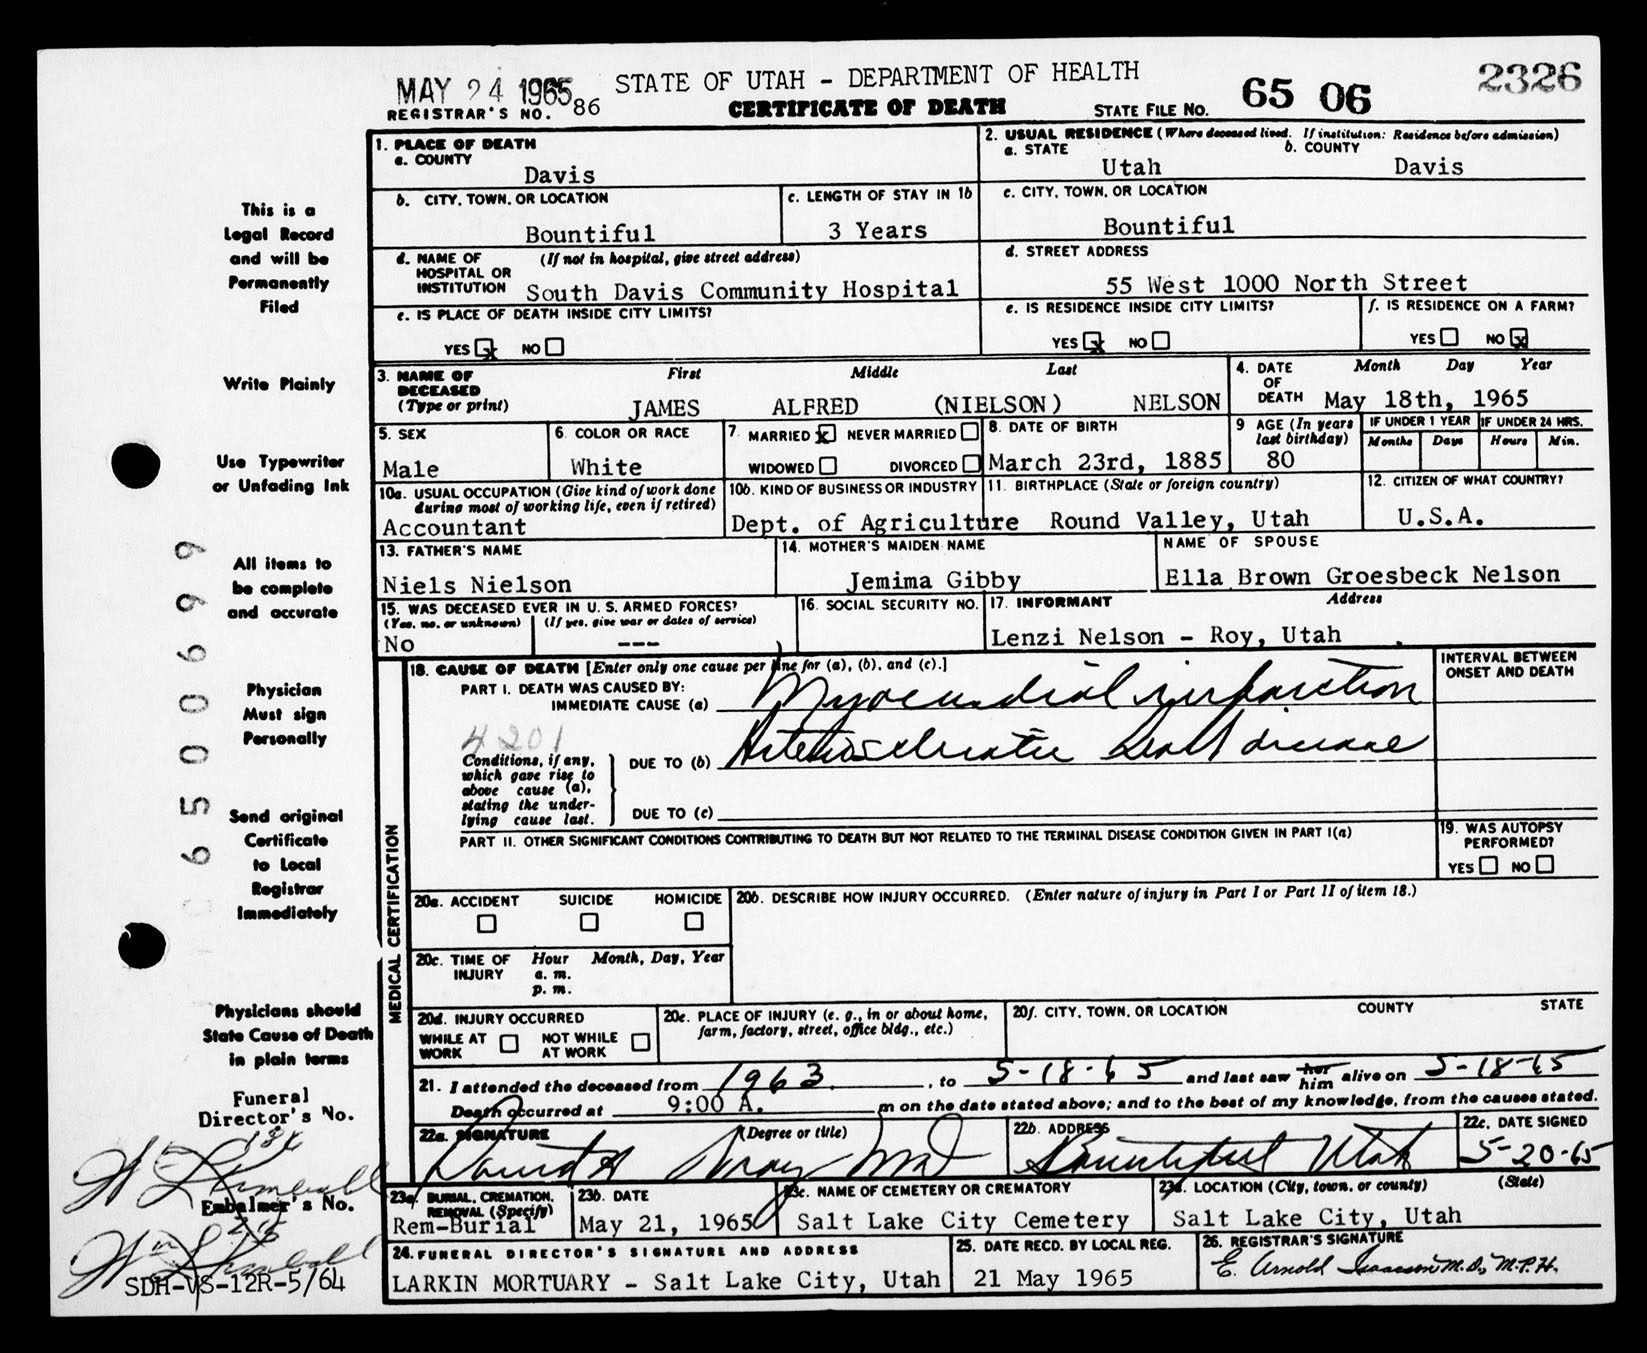 MAY 24 1965 STATE OF UTAH – DEPARTMENT OF HEALTH 2326
REGISTRAR'S NO. 86 CERTIFICATE OF DEATH STATE FILE NO. 65 06
This is a
Legal Record
and will be
Permanently
Filed
Write Plainly
Use Typewriter
or Unfading Ink
All items to
be complete
and accurate
Physician
Must sign
Personally
Send original
Certificate
to Local
Registrar
Immediately
Physicians should
State Cause of Death
in plain terms
Funeral
Director's No.
Embalmer's No.
SDH-VS-12R-5/64
6500699
1. PLACE OF DEATH
a. COUNTY
Davis
2. USUAL RESIDENCE (Where deceased lived. If institution: Residence before admission)
a. STATE b. COUNTY
Utah Davis
b. CITY, TOWN, OR LOCATION
Bountiful
c. LENGTH OF STAY IN 1b
3 Years
c. CITY, TOWN, OR LOCATION
Bountiful
d. NAME OF HOSPITAL OR INSTITUTION (If not in hospital, give street address)
South Davis Community Hospital
d. STREET ADDRESS
55 West 1000 North Street
e. IS PLACE OF DEATH INSIDE CITY LIMITS?
YES x NO
e. IS RESIDENCE INSIDE CITY LIMITS?
YES x NO
f. IS RESIDENCE ON A FARM?
YES NO x
3. NAME OF DECEASED (Type or print) First Middle Last
JAMES ALFRED (NIELSON) NELSON
4. DATE OF DEATH Month Day Year
May 18th, 1965
5. SEX
Male
6. COLOR OR RACE
White
7. MARRIED x NEVER MARRIED
WIDOWED DIVORCED
8. DATE OF BIRTH
March 23rd, 1885
9 AGE (In years last birthday)
80
IF UNDER 1 YEAR IF UNDER 24 HRS.
Months Days Hours Min.
10a. USUAL OCCUPATION (Give kind of work done during most of working life, even if retired)
Accountant
10b. KIND OF BUSINESS OR INDUSTRY
Dept. of Agriculture
11. BIRTHPLACE (State or foreign country)
Round Valley, Utah
12. CITIZEN OF WHAT COUNTRY?
U.S.A.
13. FATHER'S NAME
Niels Nielson
14. MOTHER'S MAIDEN NAME
Jemima Gibby
NAME OF SPOUSE
Ella Brown Groesbeck Nelson
15. WAS DECEASED EVER IN U. S. ARMED FORCES?
(Yes, no, or unknown) (If yes, give war or dates of service)
No ---
16. SOCIAL SECURITY NO.
17. INFORMANT Address
Lenzi Nelson – Roy, Utah
MEDICAL CERTIFICATION
18. CAUSE OF DEATH [Enter only one cause per line for (a), (b), and (c).]
INTERVAL BETWEEN ONSET AND DEATH
PART I. DEATH WAS CAUSED BY:
IMMEDIATE CAUSE (a) Myocardial infarction
4201
Conditions, if any, which gave rise to above cause (a), stating the underlying cause last.
DUE TO (b) Arteriosclerotic heart disease
DUE TO (c)
PART II. OTHER SIGNIFICANT CONDITIONS CONTRIBUTING TO DEATH BUT NOT RELATED TO THE TERMINAL DISEASE CONDITION GIVEN IN PART I(a)
19. WAS AUTOPSY PERFORMED?
YES NO
20a. ACCIDENT SUICIDE HOMICIDE
20b. DESCRIBE HOW INJURY OCCURRED. (Enter nature of injury in Part I or Part II of item 18.)
20c. TIME OF INJURY Hour Month, Day, Year
a. m.
p. m.
20d. INJURY OCCURRED
WHILE AT WORK NOT WHILE AT WORK
20e. PLACE OF INJURY (e. g., in or about home, farm, factory, street, office bldg., etc.)
20f. CITY, TOWN, OR LOCATION COUNTY STATE
21. I attended the deceased from 1963, to 5-18-65 and last saw her him alive on 5-18-65
Death occurred at 9:00 A. m on the date stated above; and to the best of my knowledge, from the causes stated.
22a. SIGNATURE (Degree or title)
22b. ADDRESS
Bountiful Utah
22c. DATE SIGNED
5-20-65
23a. BURIAL, CREMATION, REMOVAL (Specify)
Rem-Burial
23b. DATE
May 21, 1965
23c. NAME OF CEMETERY OR CREMATORY
Salt Lake City Cemetery
23d. LOCATION (City, town, or county) (State)
Salt Lake City, Utah
24. FUNERAL DIRECTOR'S SIGNATURE AND ADDRESS
LARKIN MORTUARY – Salt Lake City, Utah
25. DATE RECD. BY LOCAL REG.
21 May 1965
26. REGISTRAR'S SIGNATURE
E. Arnold Isaacson M.D., M.P.H.